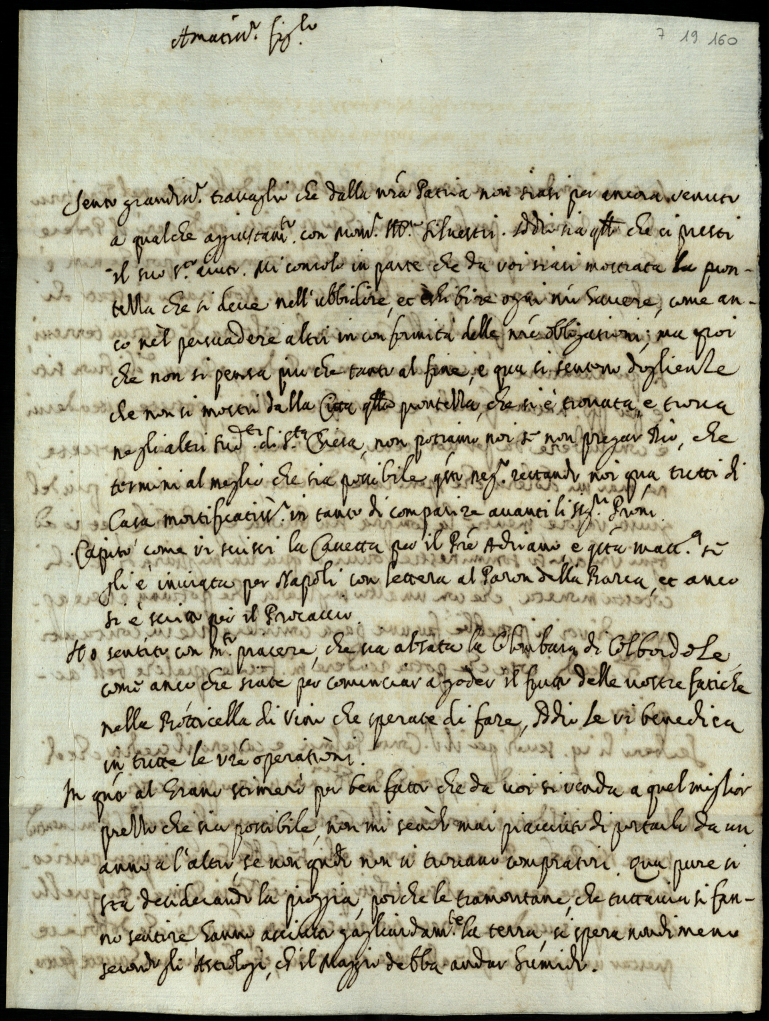 7 19 160
Amatiss.º figlo
Sento grandiss.º travaglio che dalla nrã Patria non siasi per ancora venuto
a qualche aggiustam.to con Mons.r Silvestri. Iddio sia qllo che ci presti
il suo s.to aiuto. Mi consolo in parte che da voi siasi mostrata la pron-
tezza che si deve nell'ubbidire, et eshibire ogni nrõ havere, come an-
co nel persuadere altri in conformità delle nrẽ obligationi; ma poi
che non si pensa più che tanto al fine, e qua si sentono doglienze
che non si mostri dalla Città qlla prontezza, che si è trovata, e trova
negli altri sud.ti di S.ta Chiesa, non potiamo noi se non pregar Dio, che
termini al meglio che sia possibile qsto neg.o restando noi qua tutti di
Casa mortificatiss.i in tanto di comparire avanti li Sig.ri Proni.
Capisco come vi scrissi la Cassetta per il Pre Adriano e qsta matt.a se
gli è inviata per Napoli con lettera al Paron della Barca, et anco
si è scritto per il Procaccio.
Ho sentito con m.to piacere, che sia alzata la Colombara di Colbordole
come anco che siate per cominciar a goder il frutto delle vostre fatiche
nella Botticella di vino che sperate di fare, Iddio le vi benedica
in tutte le vrẽ operationi.
In qnto al Grano stimerò per ben fatto che da voi si venda a quel miglior
prezzo che sia possibile, non mi sendo mai piaciuto di portarlo da un
anno a l'altro, se non qndo non si trovano compratori. Qua pure si
sta desiderando la pioggia, perche le tramontane, che tuttavia si fan-
no sentire hanno asciutto gagliardam.te la terra, si spera nondimeno
secondo gli Astrologi, ch'il Maggio debba andar humido.